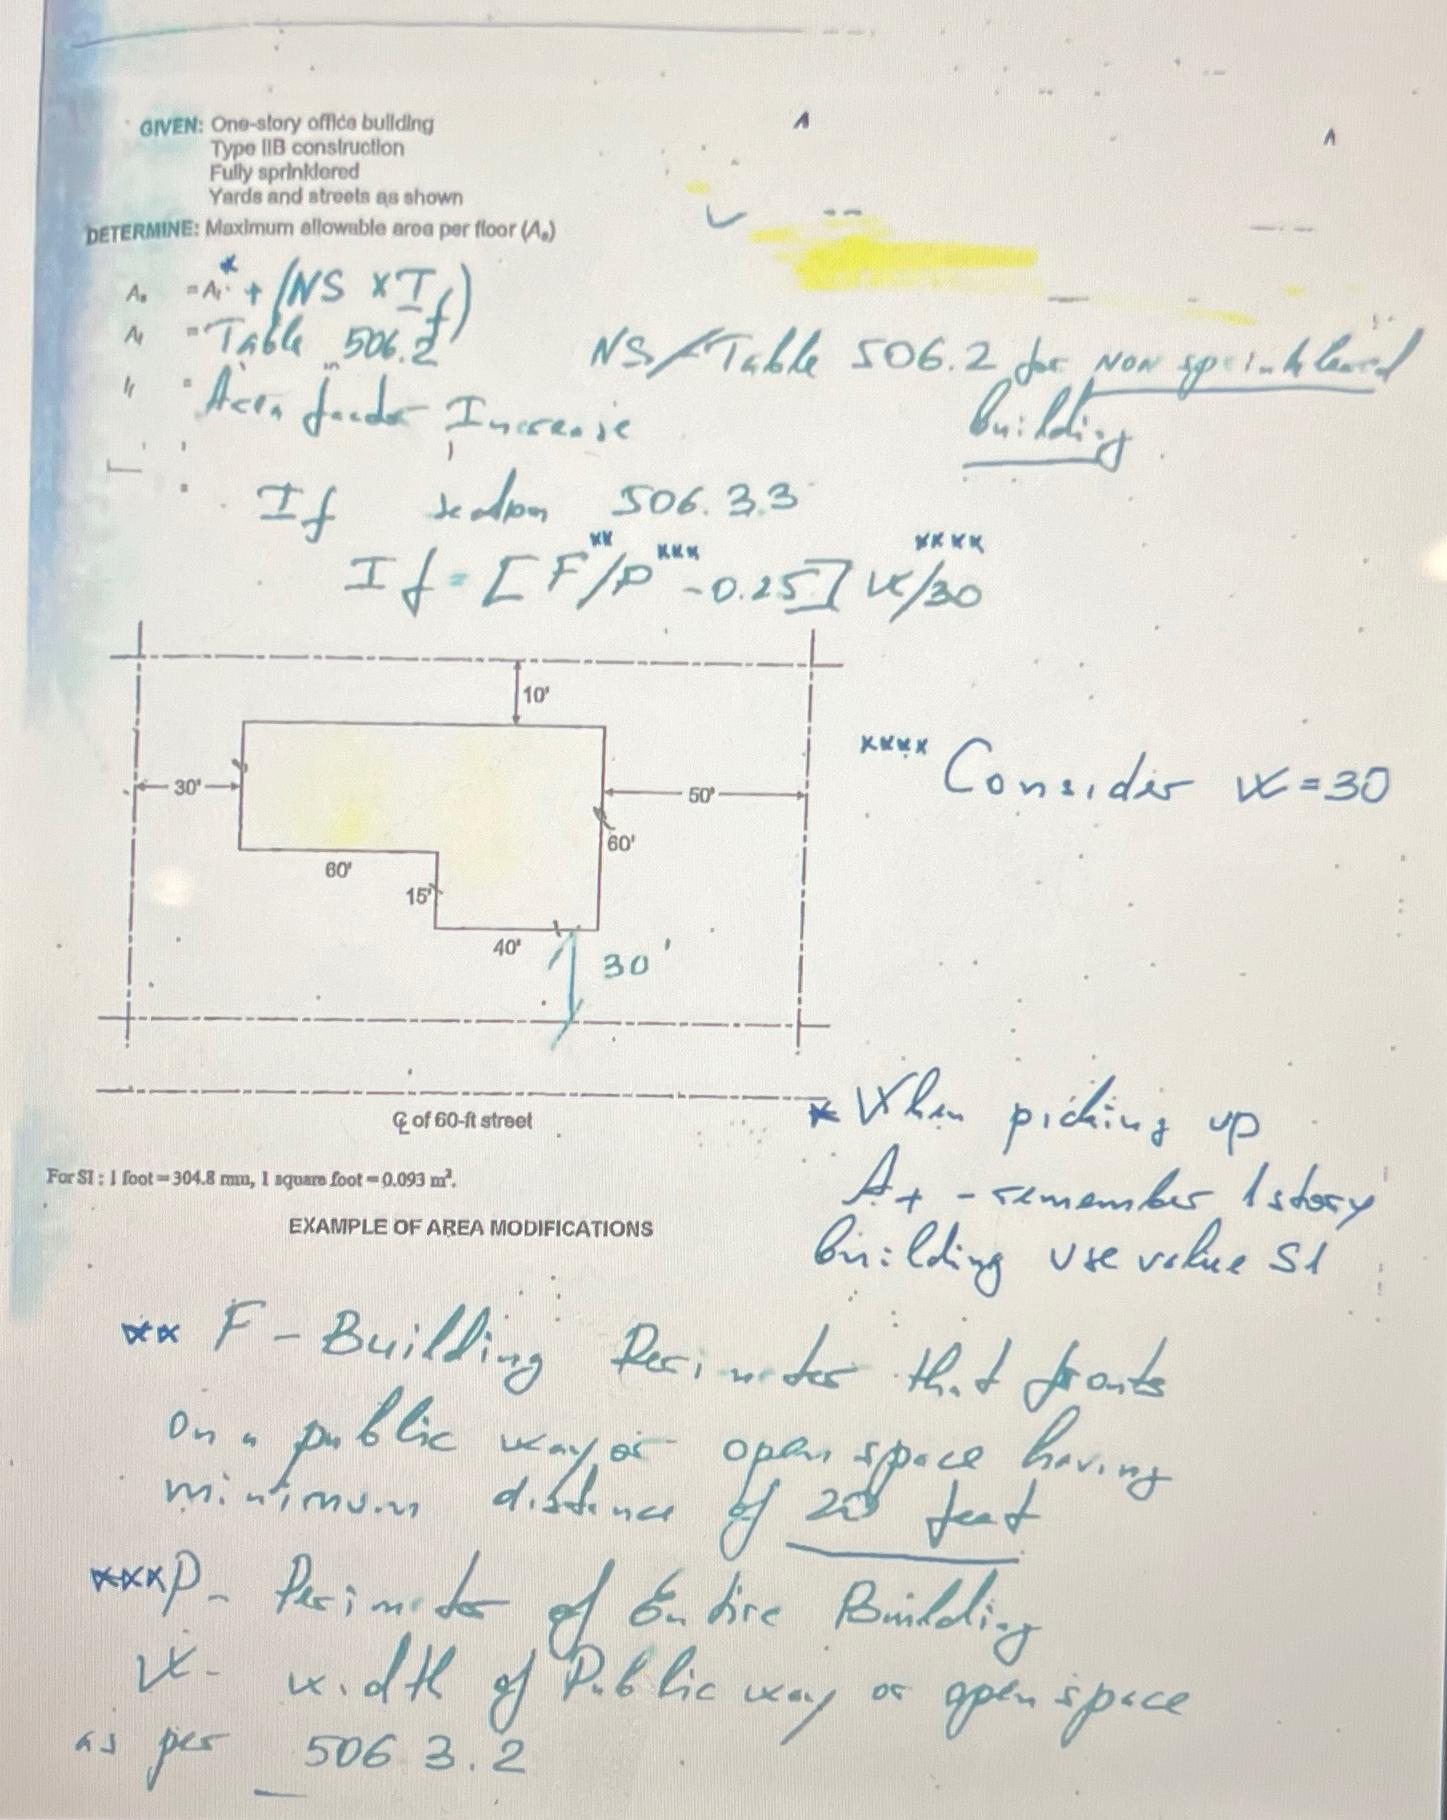 GIVEN: One-story office building
Type IIB construction
Fully sprinklered
Yards and streets as shown
DETERMINE: Maximum allowable area per floor (Aₐ)
Aₐ = Aₜ* + (NS x If)
Aₜ = Table 506.2
NS - Table 506.2 for NON sprinklered
building
If = Area factor Increase
If section 506.3.3
If = [F**/P*** - 0.25] W/30****
10'
30'
50'
60'
60'
15'
40'
30'
**** Consider W = 30
℄ of 60-ft street
For SI : 1 foot = 304.8 mm, 1 square foot = 0.093 m².
EXAMPLE OF AREA MODIFICATIONS
* When picking up
At - remember 1 story
building use value S1
** F - Building Perimeter that fronts
on a public way or open space having
minimum distance of 20 feet
*** P - Perimeter of Entire Building
W - width of Public way or open space
as per 506 3.2